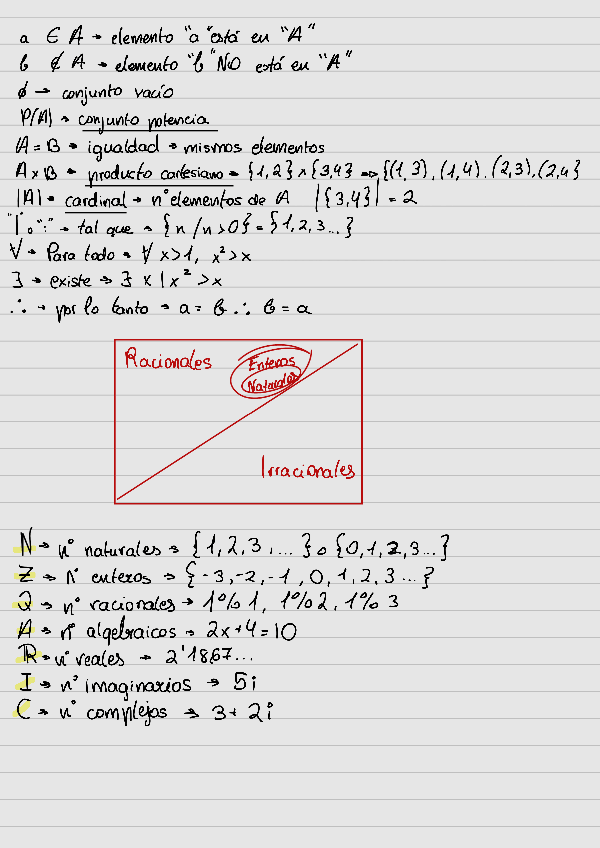 a ∈ A → elemento "a" está en "A"
b ∉ A → elemento "b" NO está en "A"
ϕ → conjunto vacío
P(A) → conjunto potencia
A = B → igualdad → mismos elementos
A x B → producto cartesiano → {1,2} x {3,4} => {(1,3), (1,4), (2,3), (2,4}
|A| → cardinal → nº elementos de A |{3,4}| = 2
"|" o ":" → tal que → {n / n > 0} = {1,2,3...}
∀ → Para todo → ∀ x>1, x² > x
∃ → existe → ∃ x | x² > x
∴ → por lo tanto → a = b ∴ b = a
Racionales
Enteros
Naturales
Irracionales
N → nº naturales → {1,2,3,...} o {0,1,2,3...}
Z → Nº enteros → {-3,-2,-1,0,1,2,3...}
Q → nº racionales → 1%1, 1%2, 1%3
A → nº algebraicos → 2x+4=10
R → nº reales → 2'1867...
I → nº imaginarios → 5i
C → nº complejos → 3+2i